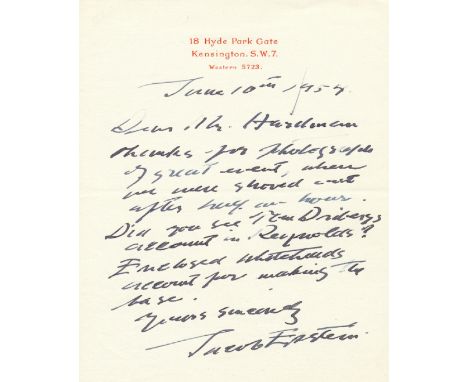 18 Hyde Park Gate
Kensington. S.W.7.
Western 5723.
June 10th 1954.
Dear Mr. Hardman
Thanks for photographs
of great event, when
we were shoved out
after half an hour.
Did you see Tom Driberg's
account in Reynolds?
Enclosed Whiteheads
account for making the
base.
Yours sincerely
Jacob Epstein.